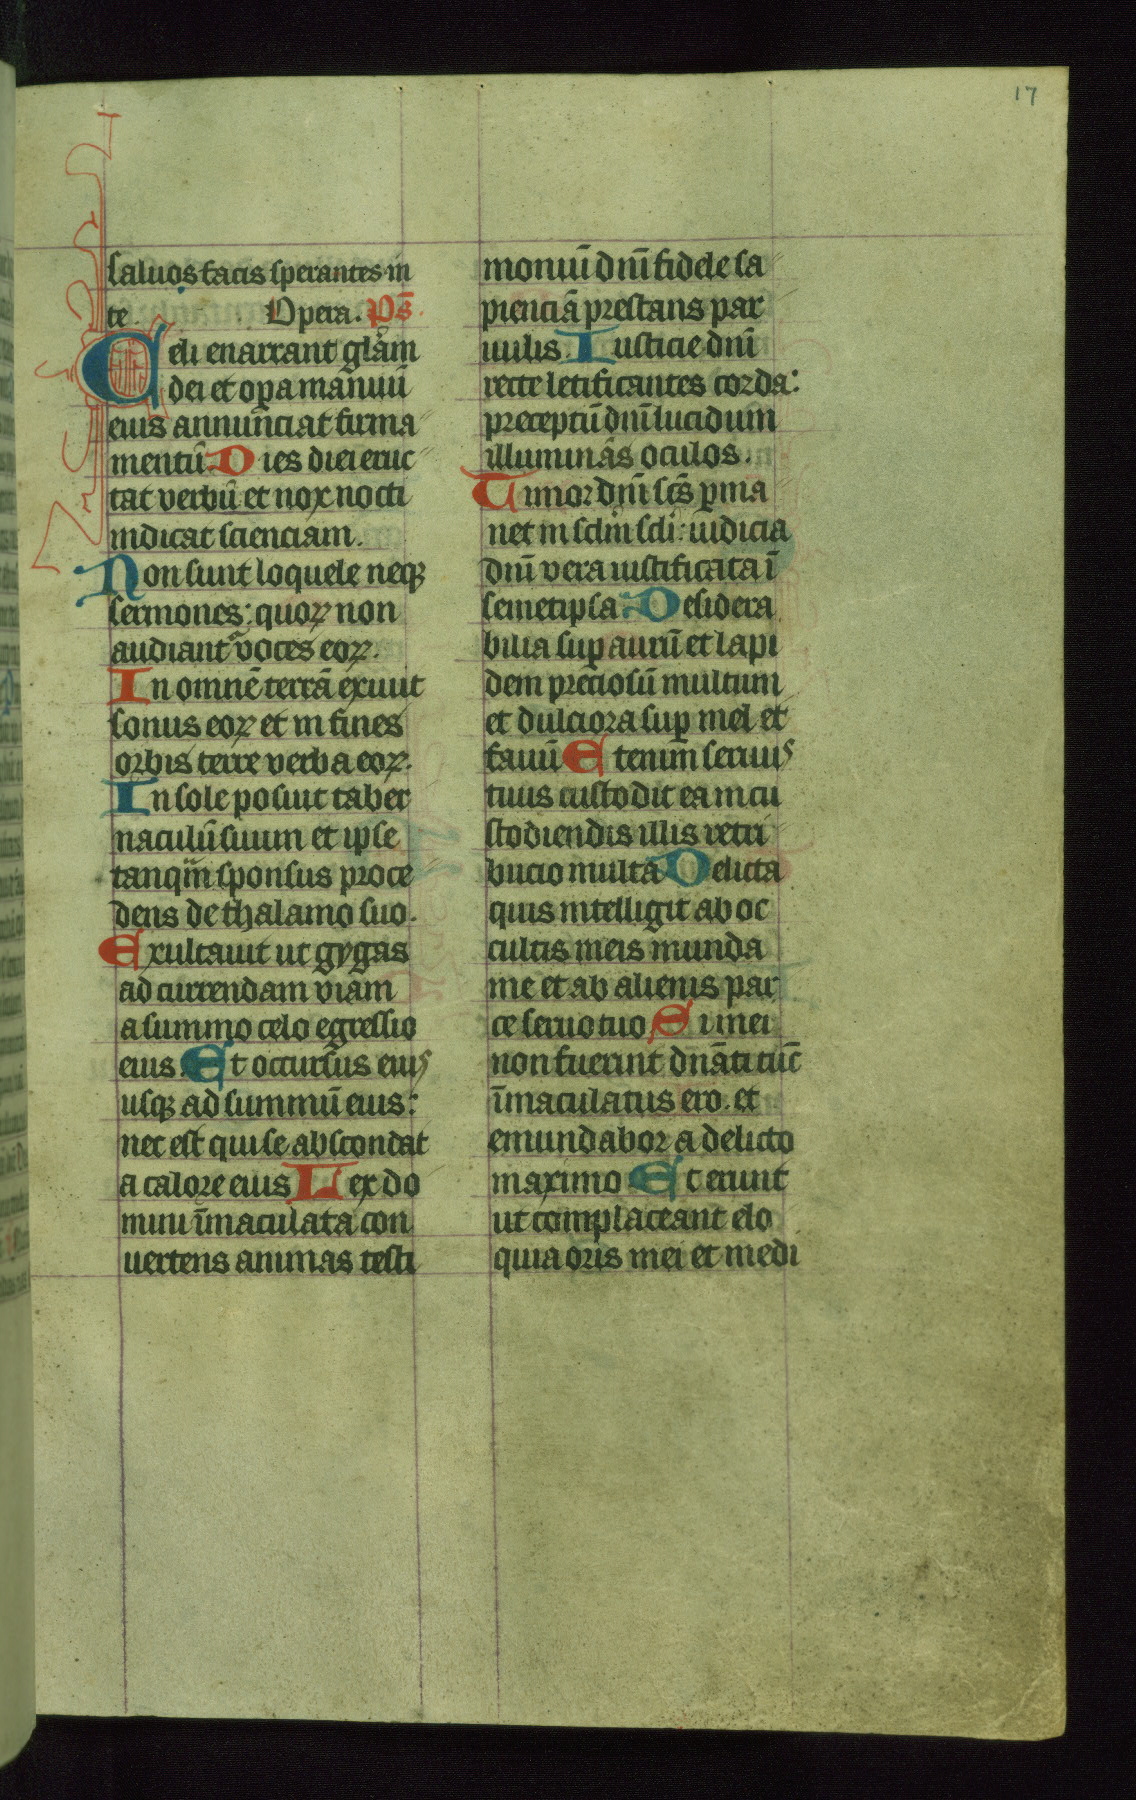 17
saluos facis sperantes in
te. Opera. Ps̄.
Celi enarrant gl̄am
dei et oꝑa manuū
eius annunciat firma
mentū. Dies diei eruc
tat verbū et nox nocti
indicat scienciam.
Non sunt loquele neqꝫ
sermones: quoꝝ non
audiantᷣ voces eoꝝ.
In omnē terrā exiuit
sonus eoꝝ et in fines
orbis terre verba eoꝝ.
In sole posuit taber
naculū suum et ipse
tanqm̄ sponsus proce
dens de thalamo suo.
Exultauit ut gygas
ad currendam viam
a summo celo egressio
eius. Et occursus eiuꝰ
usqꝫ ad summū eius:
nec est qui se abscondat
a calore eius Lex do
mini īmaculata con
uertens animas testi
moniū dn̄i fidele sa
pienciā prestans par
uulis. Iusticie dn̄i
recte letificantes corda:
preceptū dn̄i lucidum
illuminās oculos.
Timor dn̄i scs̄ ꝑma
net in sclm̄ scli: iudicia
dn̄i vera iustificata ī
semetipsa. Desidera
bilia suꝑ aurū et lapi
dem preciosū multum
et dulciora suꝑ mel et
fauū Etenim seruuꝰ
tuus custodit ea in cu
stodiendis illis retri
bucio multa Delicta
quis intelligit ab oc
cultis meis munda
me et ab alienis par
ce seruo tuo. Si mei
non fuerint dn̄ati tūc
īmaculatus ero. et
emundabor a delicto
maximo Et erunt
ut complaceant elo
quia oris mei et medi